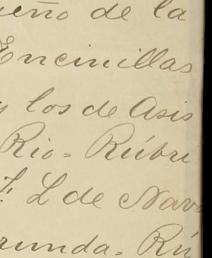 eño de la
Encinillas
y los de Asis
Rio = Rúbri
F. L de Nava
runda = Rú